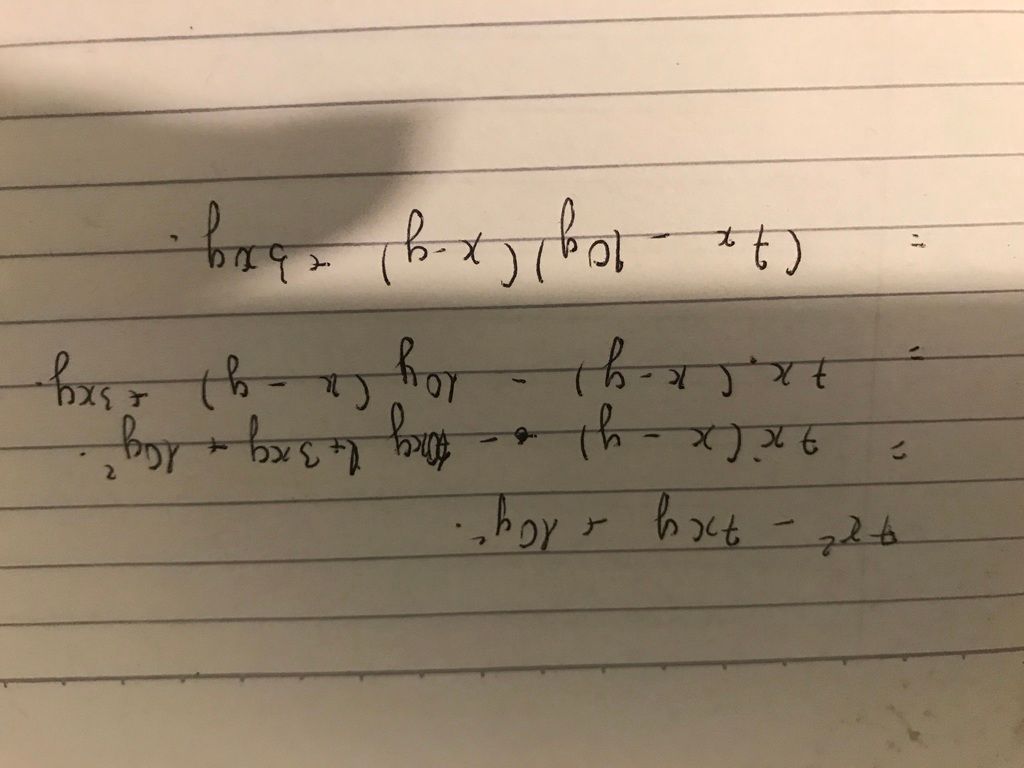 7x² - 7xy + 10y².
= 7x(x - y) - 10xy + 3xy + 10y².
= 7x(x - y) - 10y(x - y) + 3xy.
= (7x - 10y)(x - y) + 3xy.